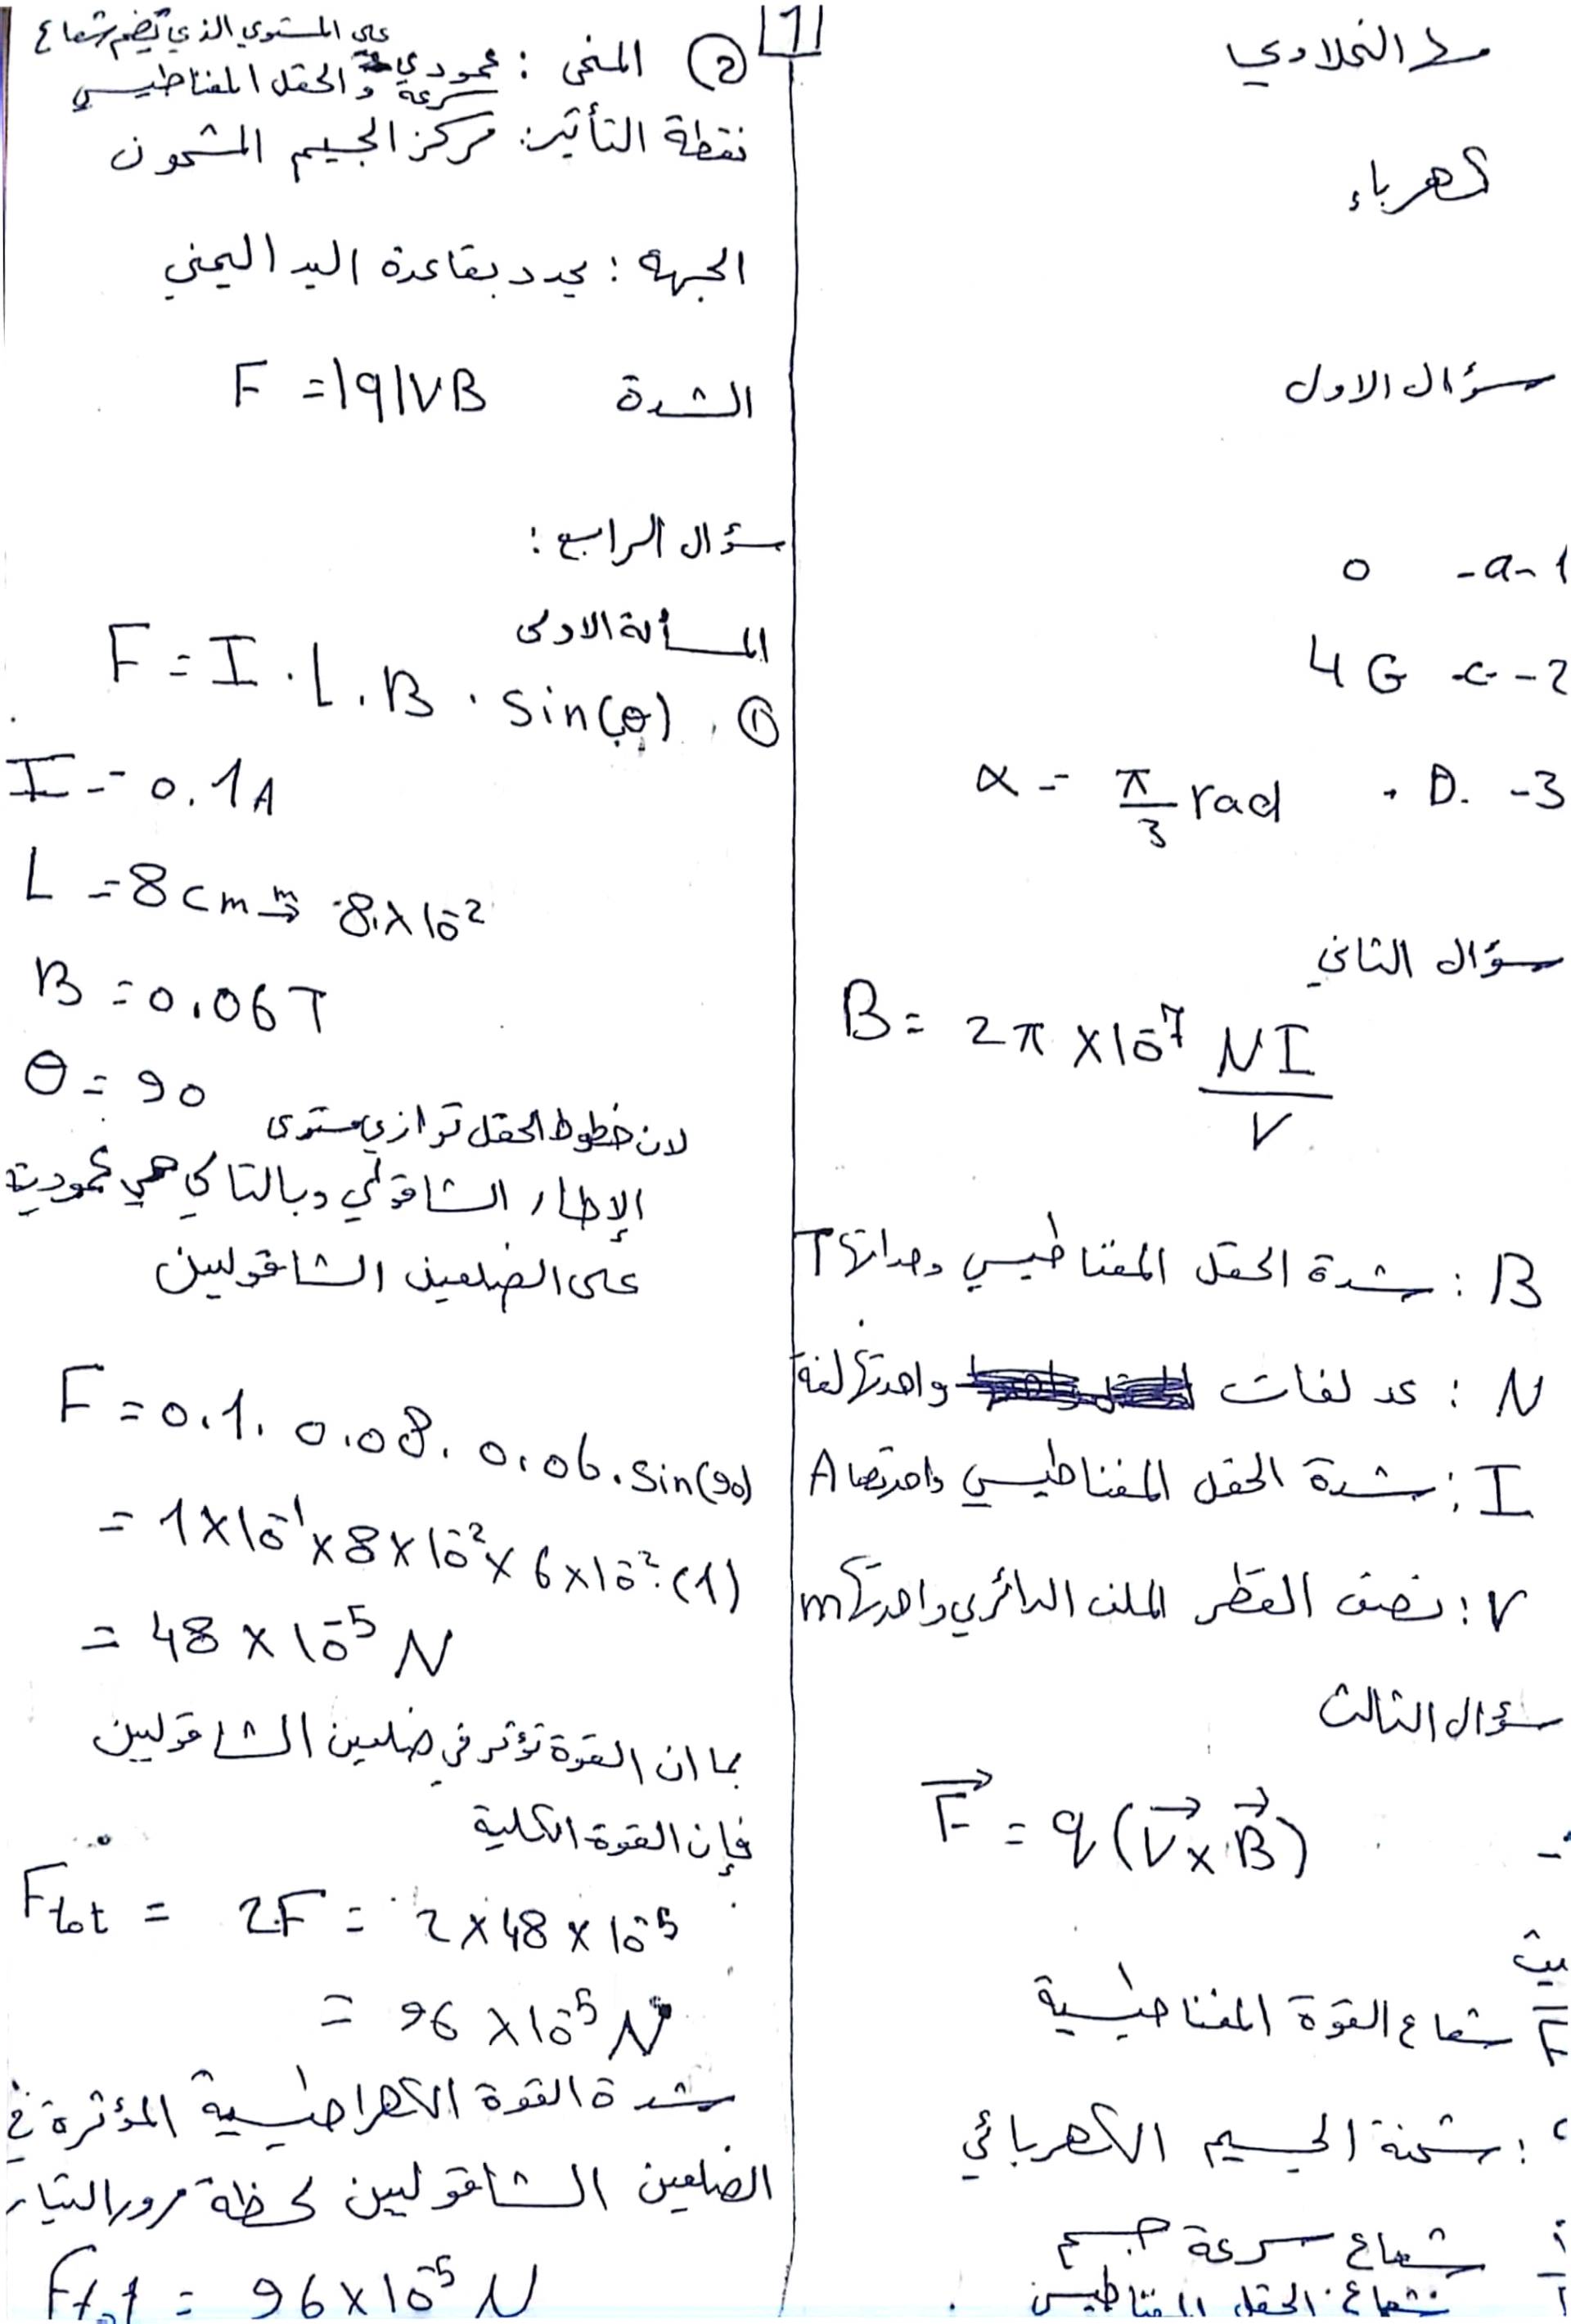 كهرباء
سؤال الاول
1 - a - 0
2 - c - 4 G
3 - D. α = π/3 rad
سؤال الثاني
B = 2π × 10⁻⁷ NI/r
B : شدة الحقل المغناطيسي وحداتها T
N : عد لفات واحدتها لفة
I : شدة الحقل المغناطيسي واحدتها A
r : نصف القطر الملف الدائري واحدتها m
سؤال الثالث
F⃗ = q (v⃗ × B⃗)
F شعاع القوة المغناطيسية
: شحنة الجسيم الكهربائي
شعاع سرعة جسم
شعاع الحقل المغناطيسي
1
② المنحى : عمودي على المستوي الذي يضم شعاع
سرعة و الحقل المغناطيسي
نقطة التأثير: مركز الجسيم المشحون
الجهة : يحدد بقاعدة اليد اليمنى
الشدة F = |q|VB
سؤال الرابع :
المسألة الاولى
① F = I . L . B . sin(θ)
I = 0.1 A
L = 8 cm → m 8 × 10⁻²
B = 0.06 T
θ = 90
لان خطوط الحقل توازي مستوى
الإطار الشاقولي وبالتالي هي عمودية
على الضلعين الشاقوليين
F = 0.1 . 0.08 . 0.06 . sin(90)
= 1 × 10⁻¹ × 8 × 10⁻² × 6 × 10⁻² . (1)
= 48 × 10⁻⁵ N
بما ان القوة تؤثر في ضلعين الشاقوليين
فإن القوة الكلية
Ftot = 2F = 2 × 48 × 10⁻⁵
= 96 × 10⁻⁵ N
شدة القوة الكهراطيسية المؤثرة في
الضلعين الشاقوليين لحظة مرور التيار
Ftot = 96 × 10⁻⁵ N